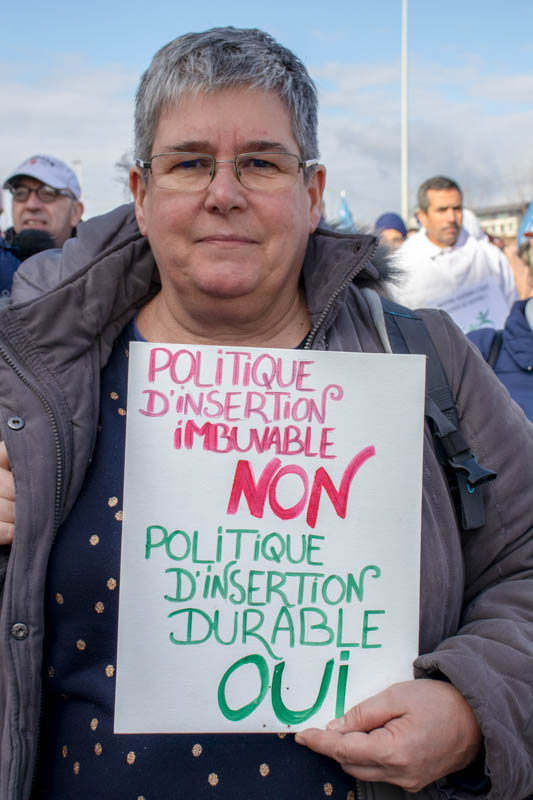 POLITIQUE
D'INSERTION
IMBUVABLE
NON
POLITIQUE
D'INSERTION
DURABLE
OUI